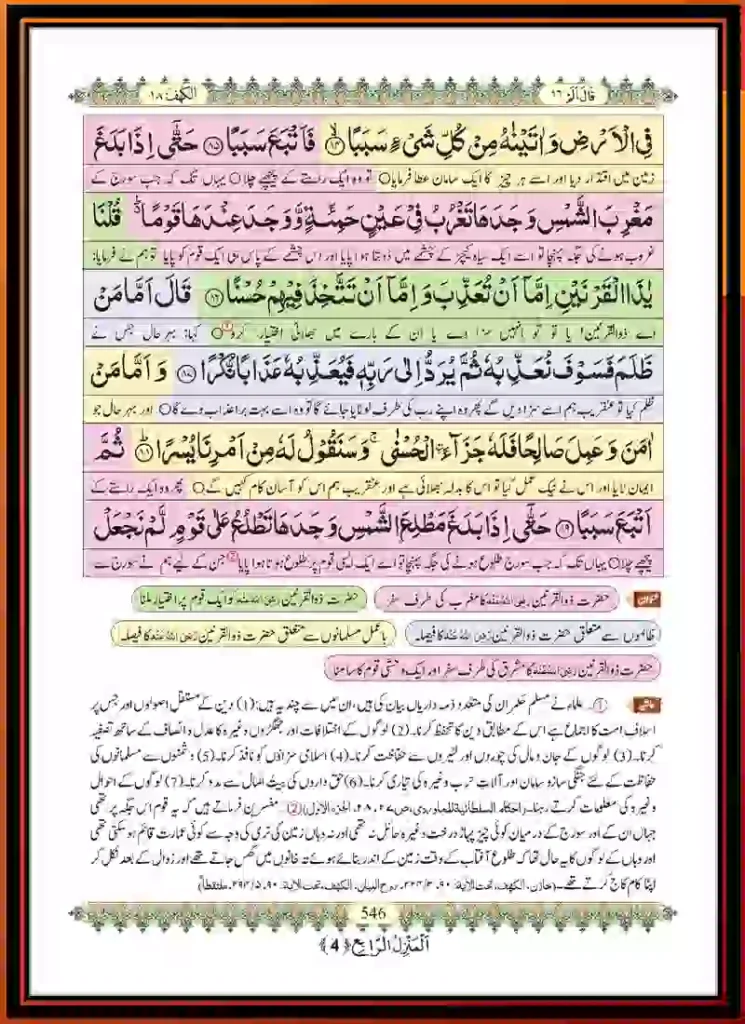 قال الم ١٦ الكهف ١٨
فِى الْاَرْضِ وَاٰتَيْنٰهُ مِنْ كُلِّ شَىْءٍ سَبَبًا ﴿۸۴﴾ فَاَتْبَعَ سَبَبًا ﴿۸۵﴾ حَتّٰۤى اِذَا بَلَغَ
زمین میں اقتدار دیا اور اسے ہر چیز کا ایک سامان عطا فرمایا○ تو وہ ایک راستے کے پیچھے چلا○ یہاں تک کہ جب سورج کے
مَغْرِبَ الشَّمْسِ وَجَدَهَا تَغْرُبُ فِىْ عَيْنٍ حَمِئَةٍ وَّوَجَدَ عِنْدَهَا قَوْمًا ؕ قُلْنَا
غروب ہونے کی جگہ پہنچا تو اسے ایک سیاہ کیچڑ کے چشمے میں ڈوبتا ہوا پایا اور اس چشمے کے پاس ہی ایک قوم کو پایا تو ہم نے فرمایا:
يٰذَا الْقَرْنَيْنِ اِمَّاۤ اَنْ تُعَذِّبَ وَاِمَّاۤ اَنْ تَتَّخِذَ فِيْهِمْ حُسْنًا ﴿۸۶﴾ قَالَ اَمَّا مَنْ
اے ذوالقرنین! یا تو تو انہیں سزا دے یا ان کے بارے میں بھلائی اختیار کرو①○ کہا: بہر حال جس نے
ظَلَمَ فَسَوْفَ نُعَذِّبُهٗ ثُمَّ يُرَدُّ اِلٰى رَبِّهٖ فَيُعَذِّبُهٗ عَذَابًا نُّكْرًا ﴿۸۷﴾ وَاَمَّا مَنْ
ظلم کیا تو عنقریب ہم اسے سزا دیں گے پھر وہ اپنے رب کی طرف لوٹایا جائے گا تو وہ اسے بہت برا عذاب دے گا○ اور بہر حال جو
اٰمَنَ وَعَمِلَ صَالِحًا فَلَهٗ جَزَآءَ ۨالْحُسْنٰى ۚ وَسَنَقُوْلُ لَهٗ مِنْ اَمْرِنَا يُسْرًا ﴿۸۸﴾ ثُمَّ
ایمان لایا اور اس نے نیک عمل کیا تو اس کا بدلہ بھلائی ہے اور عنقریب ہم اس کو آسان کام کہیں گے○ پھر وہ ایک راستے کے
اَتْبَعَ سَبَبًا ﴿۸۹﴾ حَتّٰۤى اِذَا بَلَغَ مَطْلِعَ الشَّمْسِ وَجَدَهَا تَطْلُعُ عَلٰى قَوْمٍ لَّمْ نَجْعَلْ
پیچھے چلا○ یہاں تک کہ جب سورج طلوع ہونے کی جگہ پہنچا تو اسے ایک ایسی قوم پر طلوع ہوتا ہوا پایا② جن کے لیے ہم نے سورج سے
عنوان حضرت ذوالقرنین رضی اللہ عنہ کا مغرب کی طرف سفر حضرت ذوالقرنین رضی اللہ عنہ کو ایک قوم پر اختیار ملنا
ظالموں سے متعلق حضرت ذوالقرنین رضی اللہ عنہ کا فیصلہ باعمل مسلمانوں سے متعلق حضرت ذوالقرنین رضی اللہ عنہ کا فیصلہ
حضرت ذوالقرنین رضی اللہ عنہ کا مشرق کی طرف سفر اور ایک وحشی قوم کا سامنا
حاشیہ ① علماء نے مسلم حکمران کی متعدد ذمہ داریاں بیان کی ہیں، ان میں سے چند یہ ہیں: (1) دین کے مستقل اصولوں اور جس پر
اسلافِ امت کا اجماع ہے اس کے مطابق دین کا تحفظ کرنا۔ (2) لوگوں کے اختلافات اور جھگڑوں وغیرہ کا عدل و انصاف کے ساتھ تصفیہ
کرنا۔ (3) لوگوں کے جان و مال کی چوروں اور لٹیروں سے حفاظت کرنا۔ (4) اسلامی سزاؤں کو نافذ کرنا۔ (5) دشمنوں سے مسلمانوں کی
حفاظت کے لئے جنگی ساز و سامان اور آلاتِ حرب وغیرہ کی تیاری کرنا۔ (6) حق داروں کی بیتُ المال سے مدد کرنا۔ (7) لوگوں کے احوال
وغیرہ کی معلومات کرتے رہنا۔ (احکام السلطانیة للماوردی، ص ۲۷، ۲۸، الجزء الاول) ② مفسرین فرماتے ہیں کہ یہ قوم اس جگہ پر تھی
جہاں ان کے اور سورج کے درمیان کوئی چیز پہاڑ درخت وغیرہ حائل نہ تھی اور نہ وہاں زمین کی نرمی کی وجہ سے کوئی عمارت قائم ہو سکتی تھی
اور وہاں کے لوگوں کا یہ حال تھا کہ طلوعِ آفتاب کے وقت زمین کے اندر بنائے ہوئے تہ خانوں میں گھس جاتے تھے اور زوال کے بعد نکل کر
اپنا کام کاج کرتے تھے۔ (خازن، الکہف، تحت الآیة: ۹۰، ۳/۲۲۴، روح البیان، الکہف، تحت الآیة: ۹۰، ۵/۲۹۴، ملتقطاً)
546
اَلْمَنْزِلُ الرَّابِع ﴿4﴾